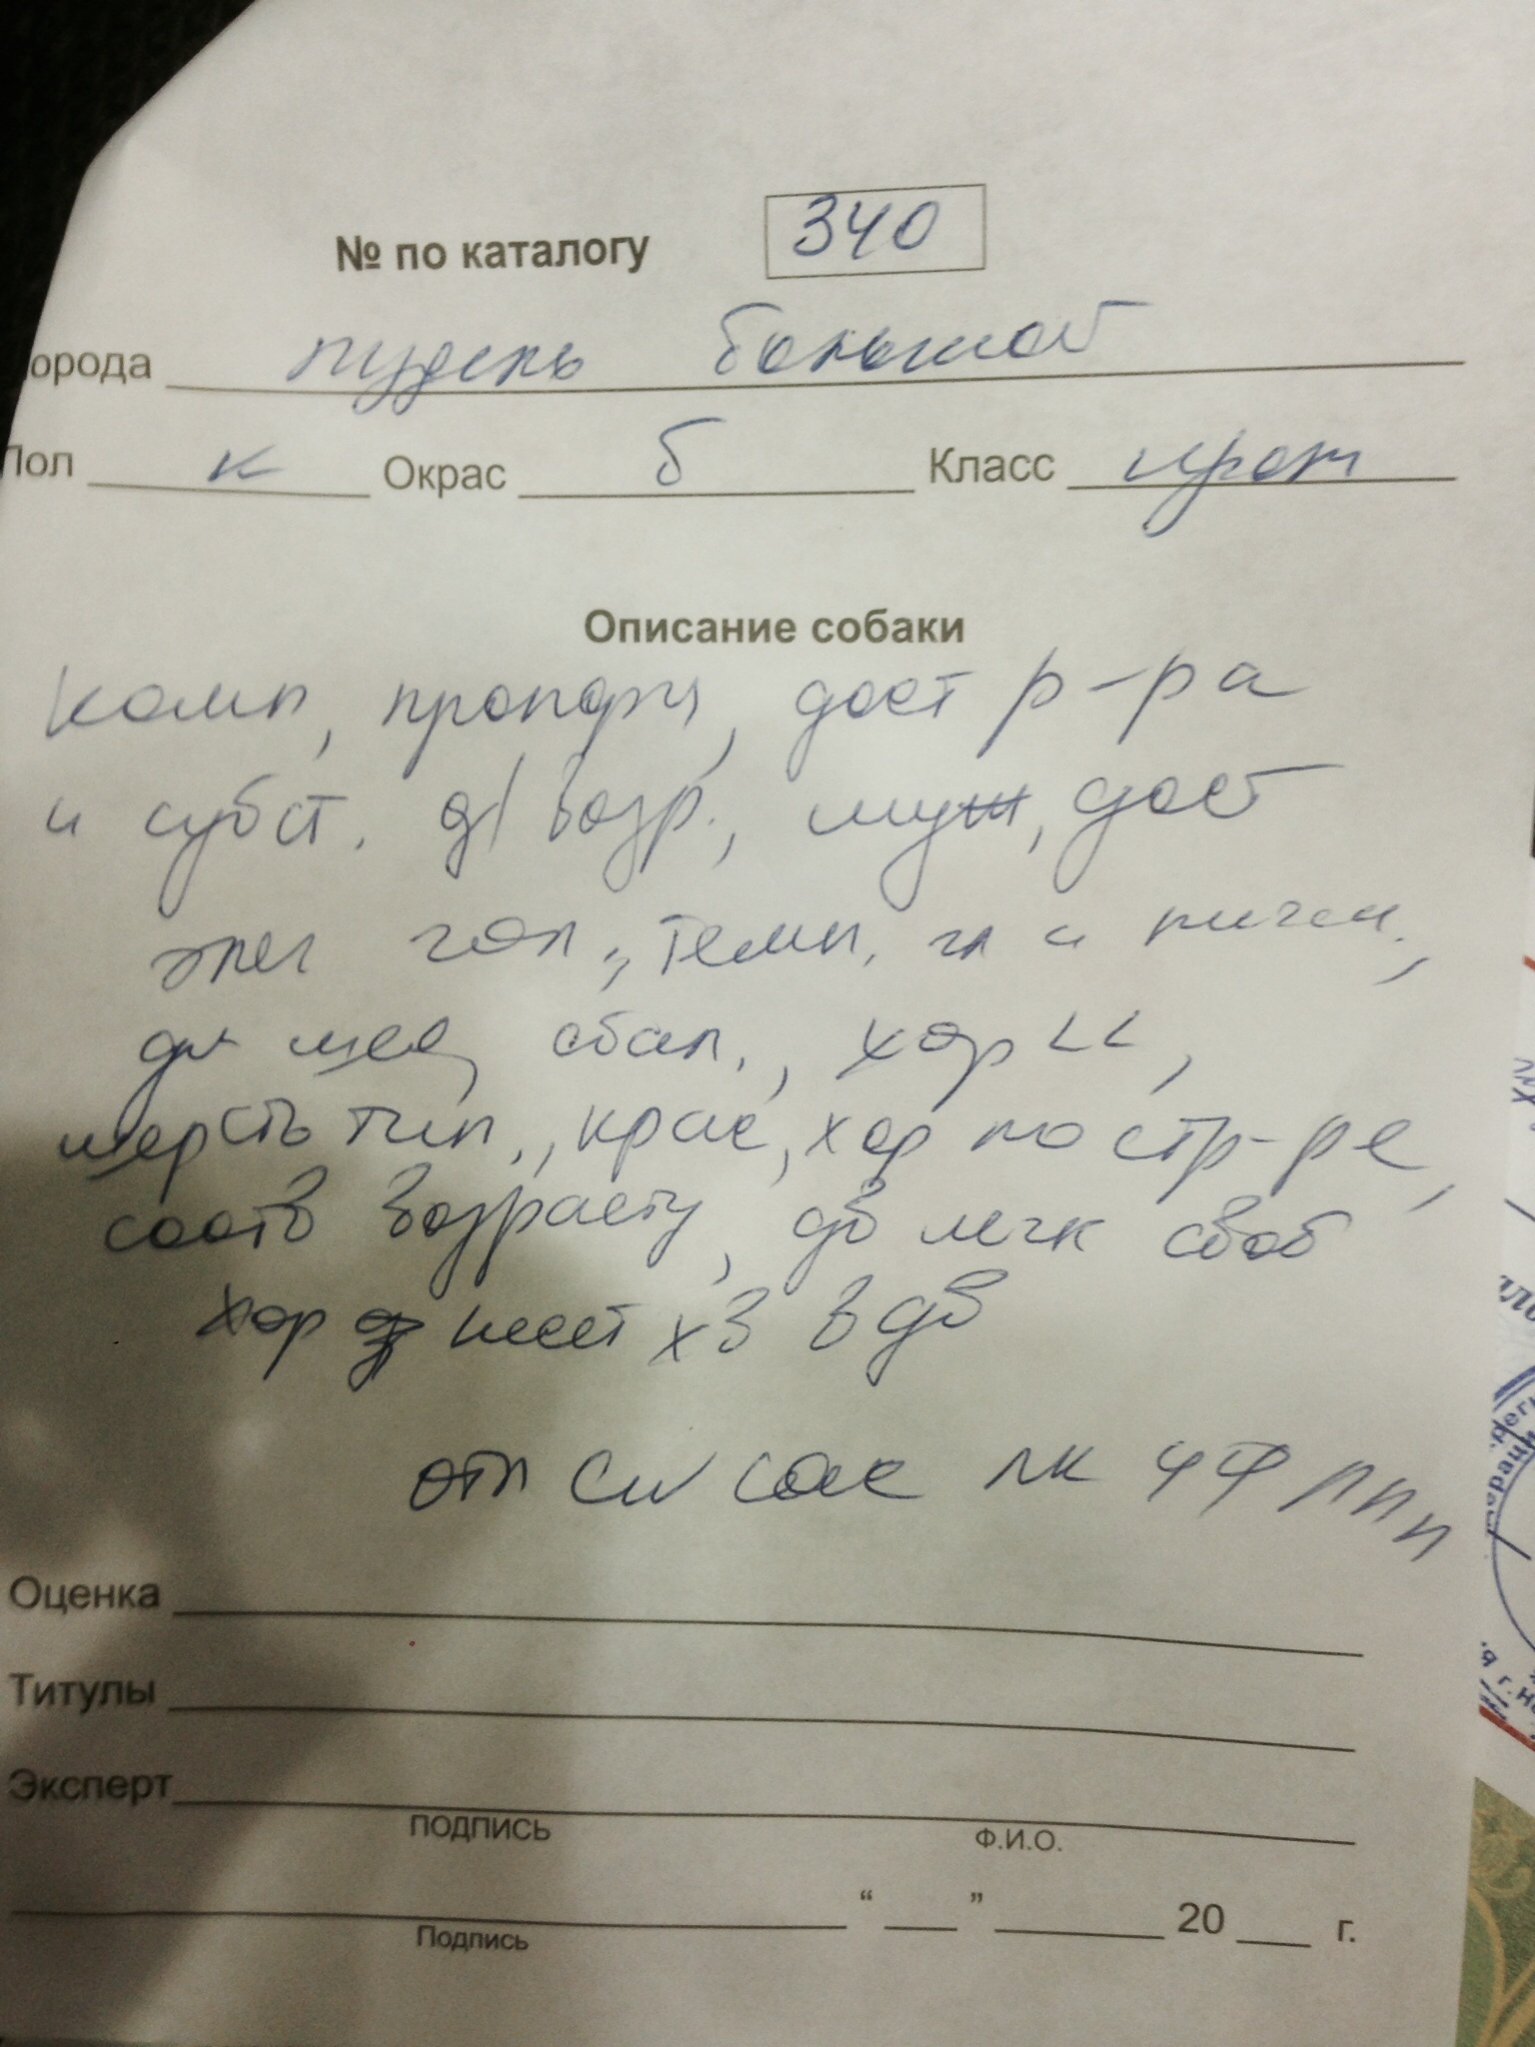 № по каталогу 340
орода пудель большой
Пол к Окрас б Класс пром
Описание собаки
Комп, пропорц, дост р-ра
и субст. д/возр., муж, дост
элег гол., темп. гл и пигм.,
дл шея, сбал., хор LL,
шерсть тип., крас, хор по стр-ре,
соотв возрасту, дв легк своб
хор несет хв в дв
отл CW САС ЛК ЧФ ППП
Оценка
Титулы
Эксперт
подпись Ф.И.О.
“ ” 20 г.
Подпись